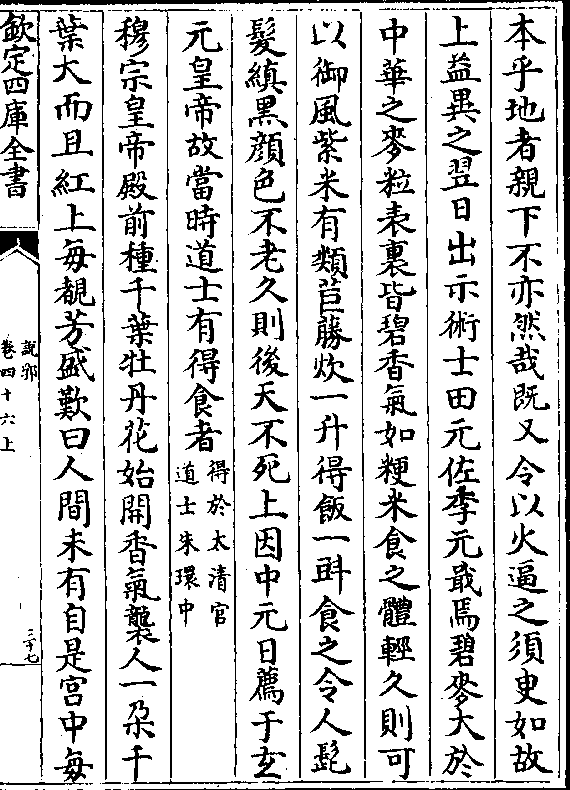 本乎地者親下不亦然哉既又令以火逼之須臾如故
上益異之翌日出示術士田元佐李元戢焉碧麥大於
中華之麥粒表裏皆碧香氣如粳米食之體輕久則可
以御風紫米有類苣蕂炊一升得飯一㪷食之令人髭
髮縝黒顔色不老久則後天不死上因中元日薦于玄
元皇帝故當時道士有得食者得於太清宫
道士朱環中
穆宗皇帝殿前種千葉牡丹花始開香氣襲人一朶千
葉大而且紅上每覩芳盛歎曰人間未有自是宫中每
欽定四庫全書
說郛
卷四十六上
三十七